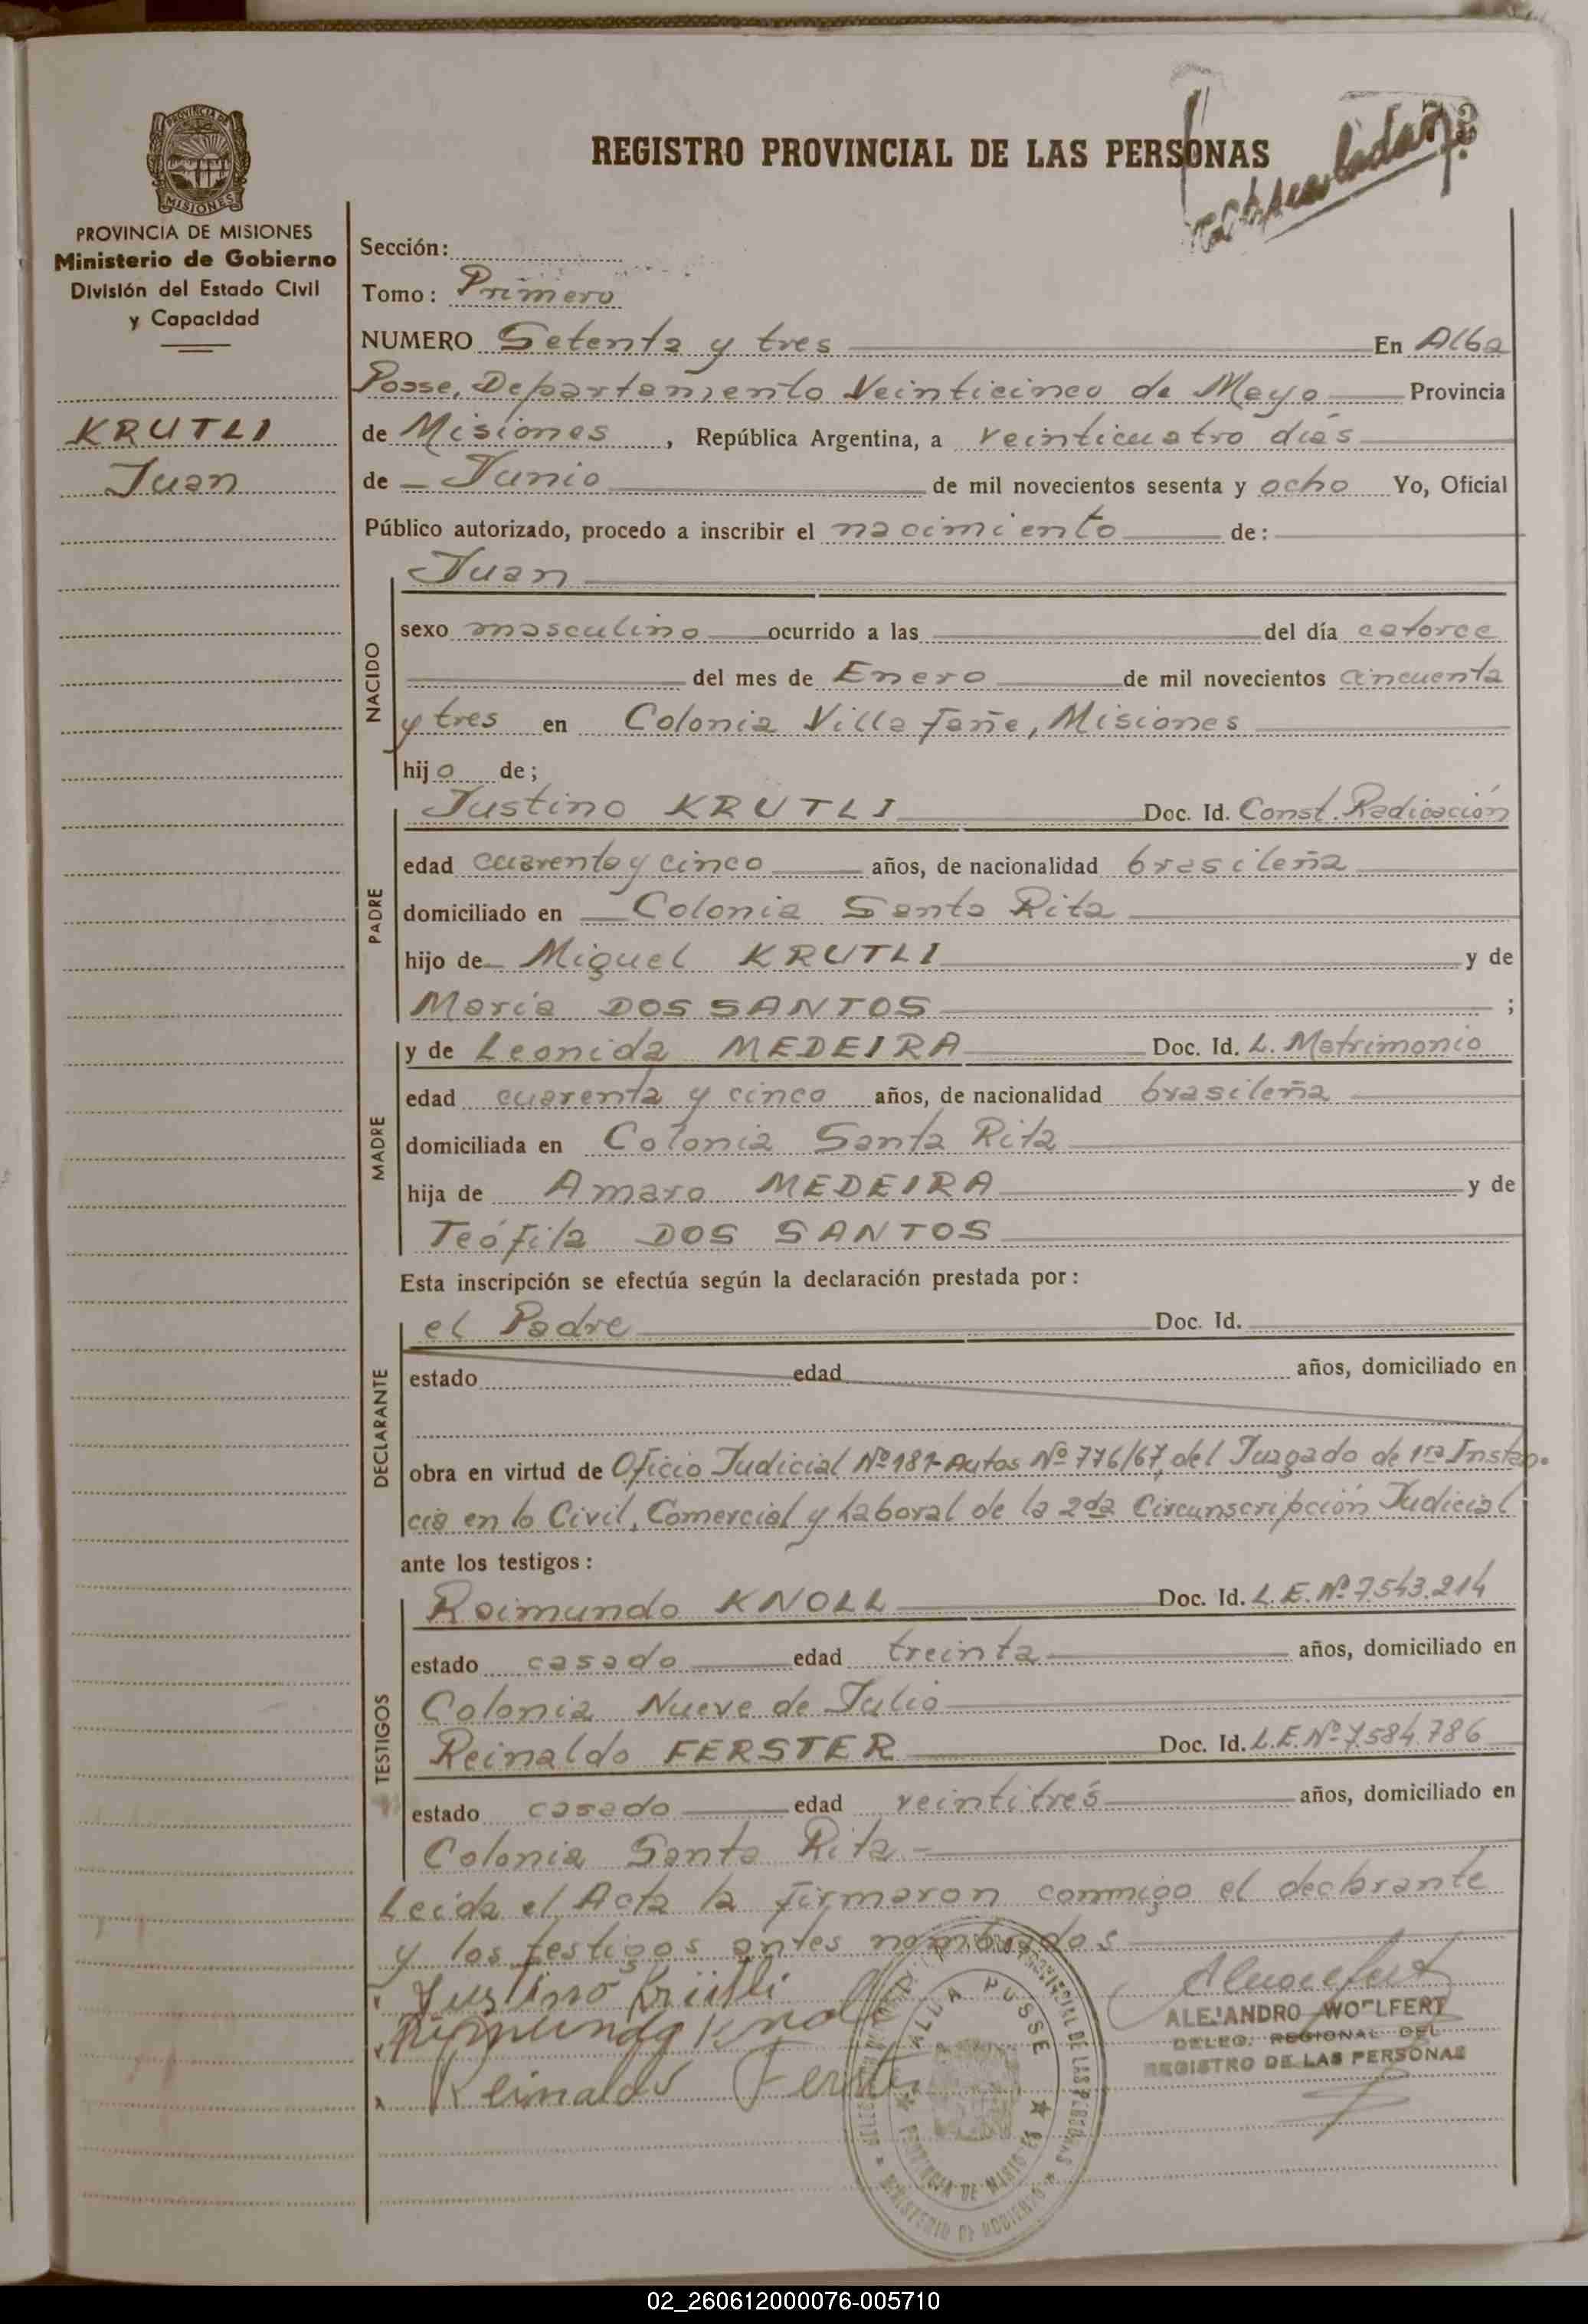 REGISTRO PROVINCIAL DE LAS PERSONAS
PROVINCIA DE
MISIONES
PROVINCIA DE MISIONES
Ministerio de Gobierno
División del Estado Civil
y Capacidad
KRUTLI
Juan
Sección:
Tomo: Primero
NUMERO Setenta y tres En Alba
Posse, Departamento Veinticinco de Mayo Provincia
de Misiones, República Argentina, a veinticuatro días
de Junio de mil novecientos sesenta y ocho Yo, Oficial
Público autorizado, procedo a inscribir el nacimiento de:
NACIDO
Juan
sexo masculino ocurrido a las del día catorce
del mes de Enero de mil novecientos cincuenta
y tres en Colonia Villafañe, Misiones
hijo de;
PADRE
Justino KRUTLI Doc. Id. Const. Radicación
edad cuarenta y cinco años, de nacionalidad brasileña
domiciliado en Colonia Santa Rita
hijo de Miguel KRUTLI y de
María DOS SANTOS ;
MADRE
y de Leonida MEDEIRA Doc. Id. L. Matrimonio
edad cuarenta y cinco años, de nacionalidad brasileña
domiciliada en Colonia Santa Rita
hija de Amaro MEDEIRA y de
Teófila DOS SANTOS
Esta inscripción se efectúa según la declaración prestada por:
DECLARANTE
el Padre Doc. Id.
estado edad años, domiciliado en
obra en virtud de Oficio Judicial Nº 181-Autos Nº 776/67, del Juzgado de 1ra Instan-
cia en lo Civil, Comercial y Laboral de la 2da Circunscripción Judicial
ante los testigos:
TESTIGOS
Raimundo KNOLL Doc. Id. L.E. Nº 7.543.214
estado casado edad treinta años, domiciliado en
Colonia Nueve de Julio
Reinaldo FERSTER Doc. Id. L.E. Nº 7.584.786
estado casado edad veintitrés años, domiciliado en
Colonia Santa Rita
Leida el Acta la firmaron conmigo el declarante
y los testigos antes nombrados
Justino Krütli
Reinaldo
ALEJANDRO WOLFERT
DELEG. REGIONAL DEL
REGISTRO DE LAS PERSONAS
POSSE
PROVINCIAL DE LAS PERSONAS
MINISTERIO DE GOBIERNO
02_260612000076-005710